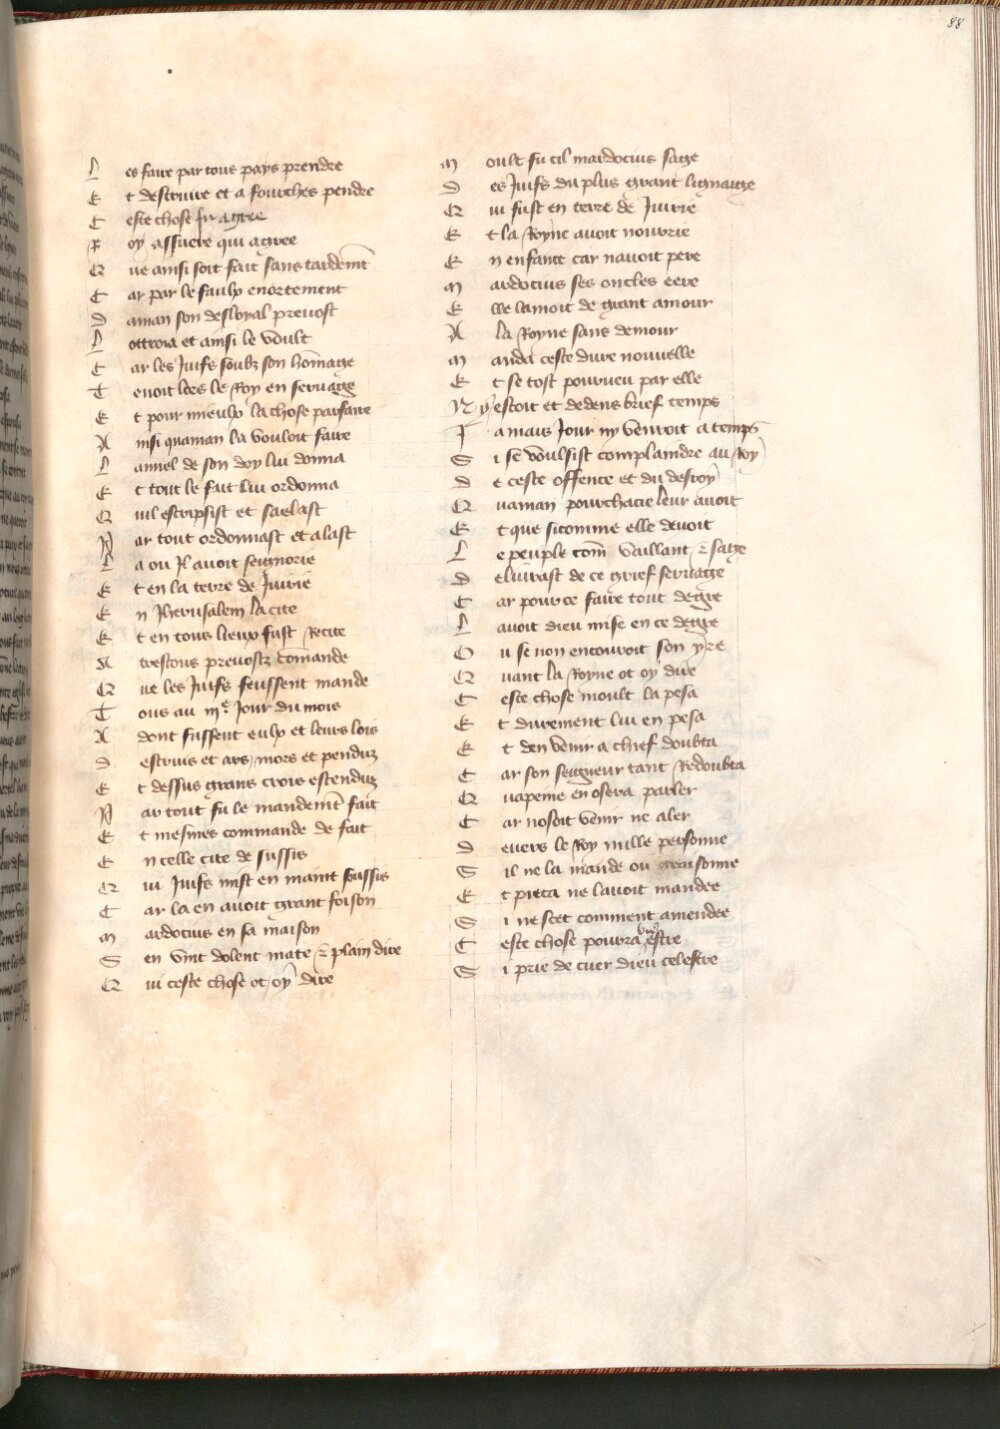 88
Les faire par tous pays prendre
Et destruire et a fourches pendre
Ceste chose fu agree
Roy assuere qui agree
Que ainsi soit fait sans tardemt
Car par le faulx enortement
Daman son desloyal prevost
Lottroia et ainsi le voult
Car les Juifs soubz son homage
Tenoit lors le Roy en servage
Et pour mieulx la chose parfaire
Ainsi quaman la vouloit faire
Lannel de son doy lui donna
Et tout le fait lui ordonna
Quil escripsist et saelast
Par tout ordonnast et alast
La ou Il avoit seignorie
Et en la terre de Juirie
En Jherusalem la cite
Et en tous lieux fust Recite
A trestous prevostz comande
Que les Juifs feussent mande
Tous au mesme Jour du mois
Adont fussent eulx et leurs lois
Destruis et ars mors et penduz
Et dessus grans crois estenduz
Par tout fu le mandemt fait
Et mesmes commande de fait
En celle cite de sussis
Qui Juifs mist en maint sussis
Car la en avoit grant foison
Mardocius en sa maison
Sen vint dolent mate et plain dire
Qui ceste chose ot oy dire
Moult fu cil mardocius sage
Des Juifs du plus grant lignaige
Qui fust en terre de Juirie
Et la Royne avoit nourrie
En enfance car navoit pere
Mardocius ses oncles eere
Elle lamoit de grant amour
A la Royne sans demour
Manda ceste dure nouvelle
Et se tost pourveu par elle
Ny estoit et dedens brief temps
Jamais Jour ny venroit a temps
Si se voulsist complaindre au Roy
De ceste offence et du desroy
Quaman pourchacie leur avoit
Et que sicomme elle devoit
Le peuple com vaillant et sage
Delivrast de ce grief servage
Car pour ce faire tout degre
Lavoit dieu mise en ce degre
Ou se non encouroit son yre
Quant la Royne ot oy dire
Ceste chose moult la pesa
Et durement lui en pesa
Et den venir a chief doubta
Car son seigneur tant Redoubta
Qua peine en osera parler
Car nosoit venir ne aler
Devers le Roy nulle personne
Sil ne la mande ou araisonne
Et pieca ne lavoit mandee
Si ne scet comment amendee
Ceste chose pourra estre
Si prie de cuer dieu celestre